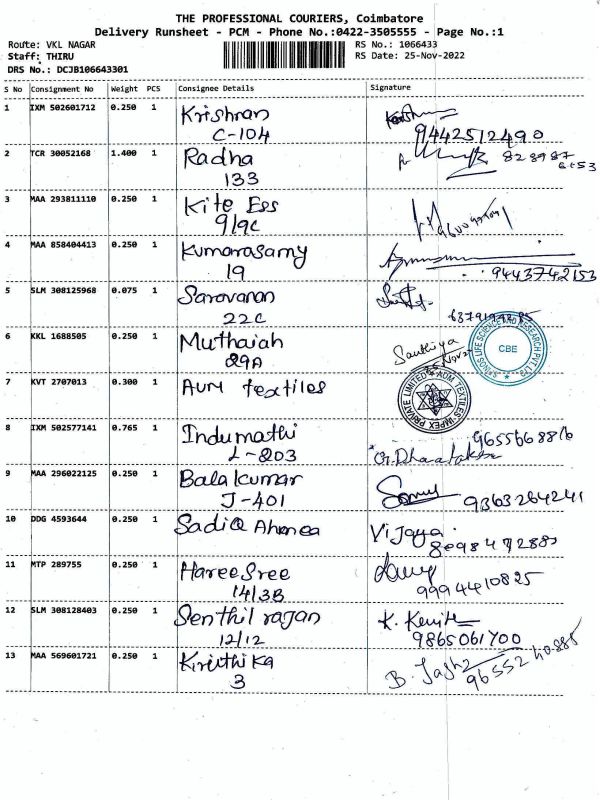 THE PROFESSIONAL COURIERS, Coimbatore
Delivery Runsheet - PCM - Phone No.:0422-3505555 - Page No.:1
Route: VKL NAGAR
RS No.: 1066433
Staff: THIRU
RS Date: 25-Nov-2022
DRS No.: DCJB106643301
S No Consignment No Weight PCS Consignee Details Signature
1 IXM 502601712 0.250 1 Krishnan
C-104 9442512490
2 TCR 30052168 1.400 1 Radha
133
3 MAA 293811110 0.250 1 Kite Ess
9/9C
4 MAA 858404413 0.250 1 Kumarasamy
19 9443742153
5 SLM 308125968 0.075 1 Saravanan
22C
6 KKL 1688505 0.250 1 Muthaiah
29A
SANOS LIFE SCIENCE AND RESEARCH PVT LTD
CBE
7 KVT 2707013 0.300 1 Aum textiles
AUM TEXTILES IMPEX PRIVATE LIMITED
8 IXM 502577141 0.765 1 Indumathi
L-203
9 MAA 296022125 0.250 1 Balakumar
J-401 9363264241
10 DDG 4593644 0.250 1 Sadiq Ahmea Vijaya
11 MTP 289755 0.250 1 Hareesree
14/3B 9994410825
12 SLM 308128403 0.250 1 Senthil rajan K.
12/12 9865061700
13 MAA 569601721 0.250 1 Kiruthika B.
3